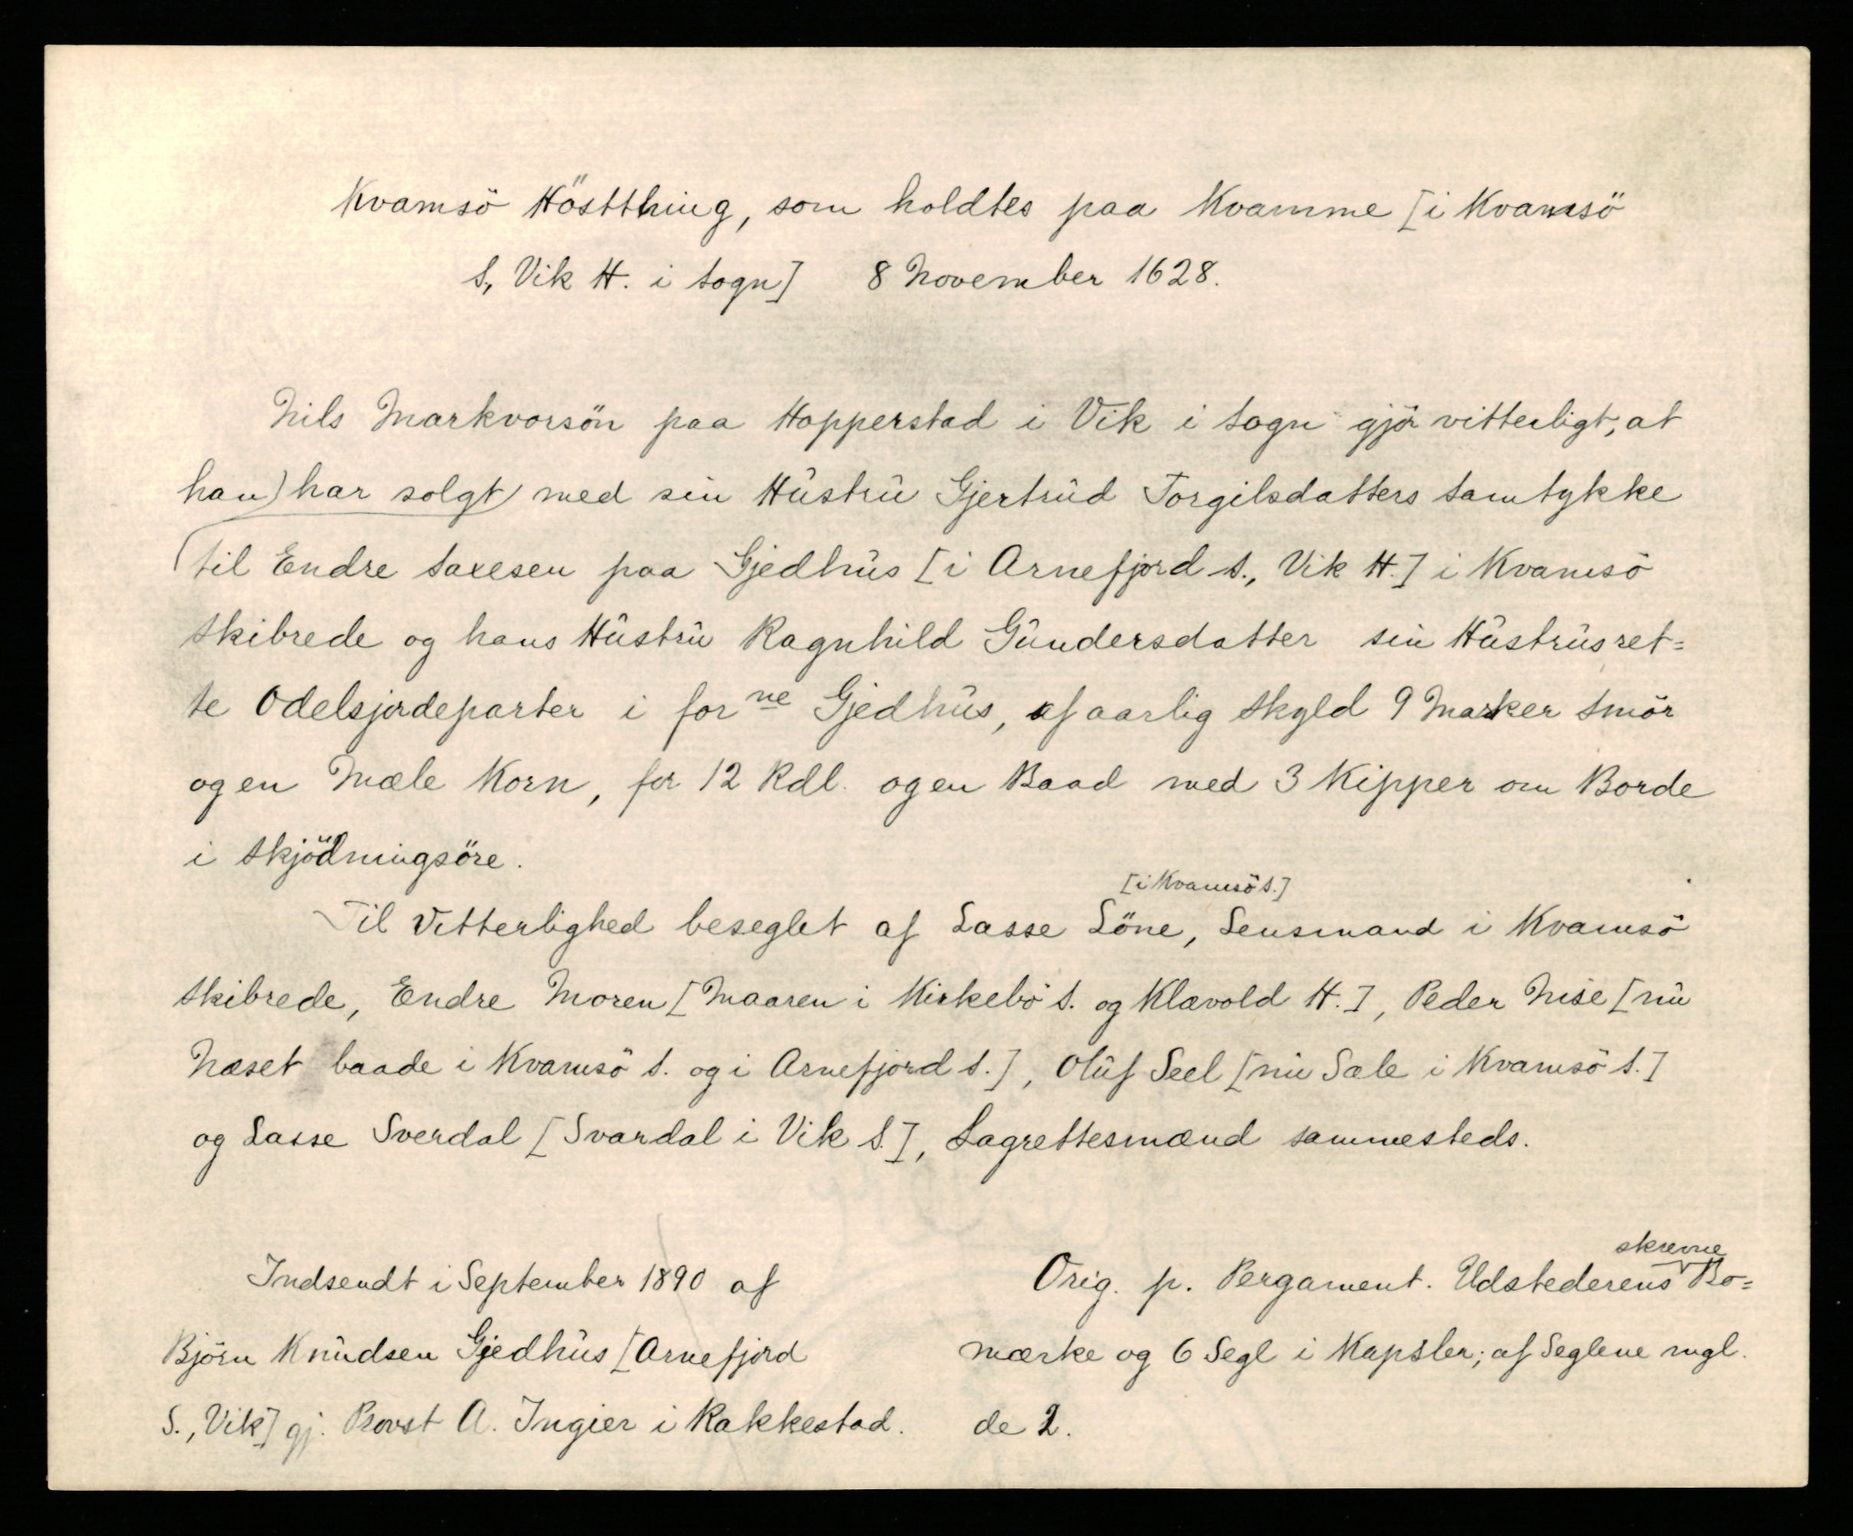 Kvamsö Höstthing, som holdtes paa Kvamme [i Kvamsö
S., Vik H. i Sogn] 8 November 1628.
Nils Markvorsön paa Hopperstad i Vik i Sogn gjör vitterligt, at
han) har solgt) med sin Hustru Gjertrud Torgilsdatters Samtykke
(til Endre Saxesen paa Gjedhus [i Arnefjord S., Vik H.] i Kvamsö
Skibrede og hans Hustru Ragnhild Gundersdatter sin Hustrus ret=
te Odelsjordeparter i forne Gjedhus, af aarlig Skyld 9 Marker Smör
og en Mæle Korn, for 12 Rdl. og en Baad med 3 Kipper om Borde
i Skjödningsöre.
[i Kvamsö S.]
Til Vitterlighed beseglet af Lasse Löne, Lensmand i Kvamsö
Skibrede, Endre Moren [Maaren i Kirkebö S. og Klævold H.], Peder Nise [nu
Næset baade i Kvamsö S. og i Arnefjord S.], Oluf Seel [nu Sæle i Kvamsö S.]
og Lasse Sverdal [Svardal i Vik S.], Lagrettesmænd sammesteds.
Indsendt i September 1890 af
Björn Knudsen Gjedhus [Arnefjord
S., Vik] gj. Provst A. Ingier i Rakkestad.
skrevne
Orig. p. Pergament. Udstederens Bo=
mærke og 6 Segl i Kapsler; af Seglene mgl.
de 2.